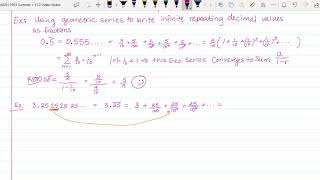 Ex: Using geometric series to write infinite repeating decimal values
as fractions
0.5̅ = 0.555... = 5/10 + 5/10² + 5/10³ + 5/10⁴ + ... = 5/10 (1 + 1/10 + (1/10)² + (1/10)³ + ...
= ∞ Σ n=1 5/10 · 1/10ⁿ⁻¹ |r| = 1/10 < 1 ⇒ this Geo Series Converges to Sum a/1-r
= 5/10 / 1-1/10 = 5/10 / 9/10 = 5/9
Ex: 3.25 25 25 25... = 3.25̅ = 3 + 25/100 + 25/10⁴ + 25/10⁶ + ... =